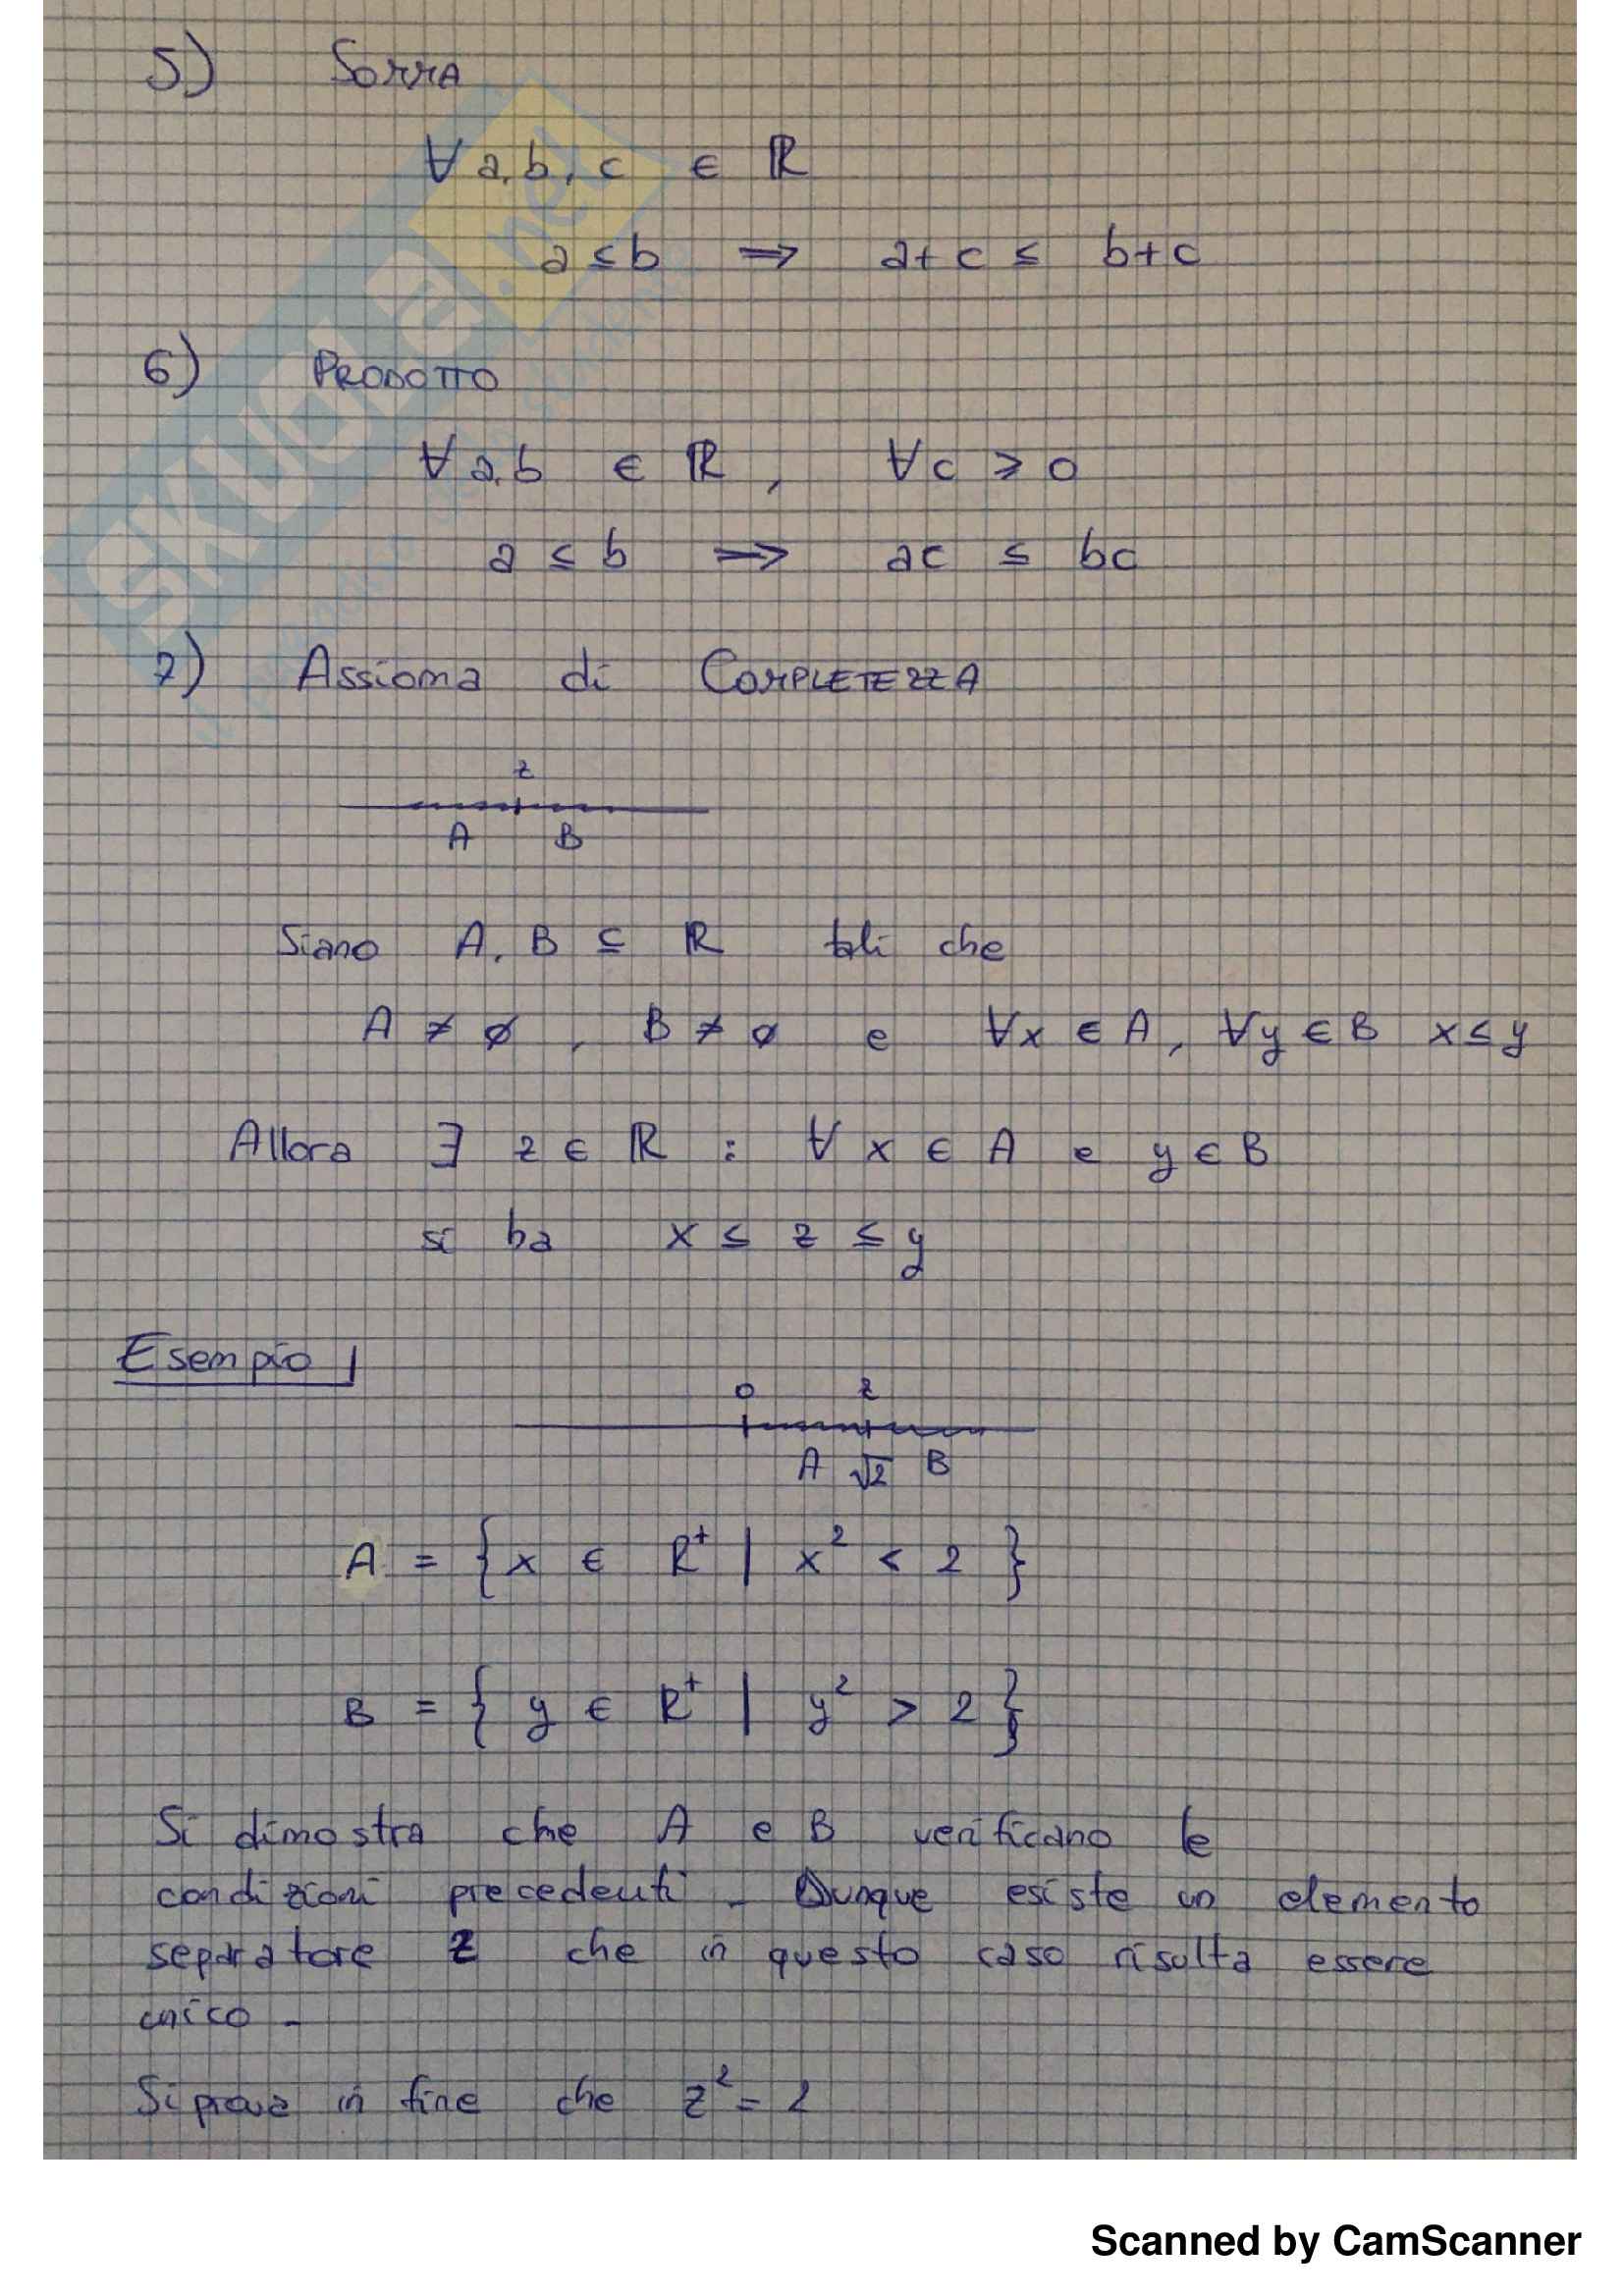 5) SOMMA
∀ a, b, c ∈ ℝ
a ≤ b ⇒ a+c ≤ b+c
6) PRODOTTO
∀ a, b ∈ ℝ, ∀ c ⩾ 0
a ≤ b ⇒ ac ≤ bc
7) Assioma di COMPLETEZZA
z
A B
Siano A, B ⊆ ℝ tali che
A ≠ ∅, B ≠ ∅ e ∀x ∈ A, ∀y ∈ B x ≤ y
Allora ∃ z ∈ ℝ : ∀ x ∈ A e y ∈ B
si ha x ≤ z ≤ y
Esempio
0 z
A √2 B
A = {x ∈ R⁺ | x² < 2}
B = {y ∈ R⁺ | y² > 2}
Si dimostra che A e B verificano le
condizioni precedenti. Dunque esiste un elemento
separatore z che in questo caso risulta essere
unico.
Si prova in fine che z² = 2
SKUOLA.net
Scanned by CamScanner